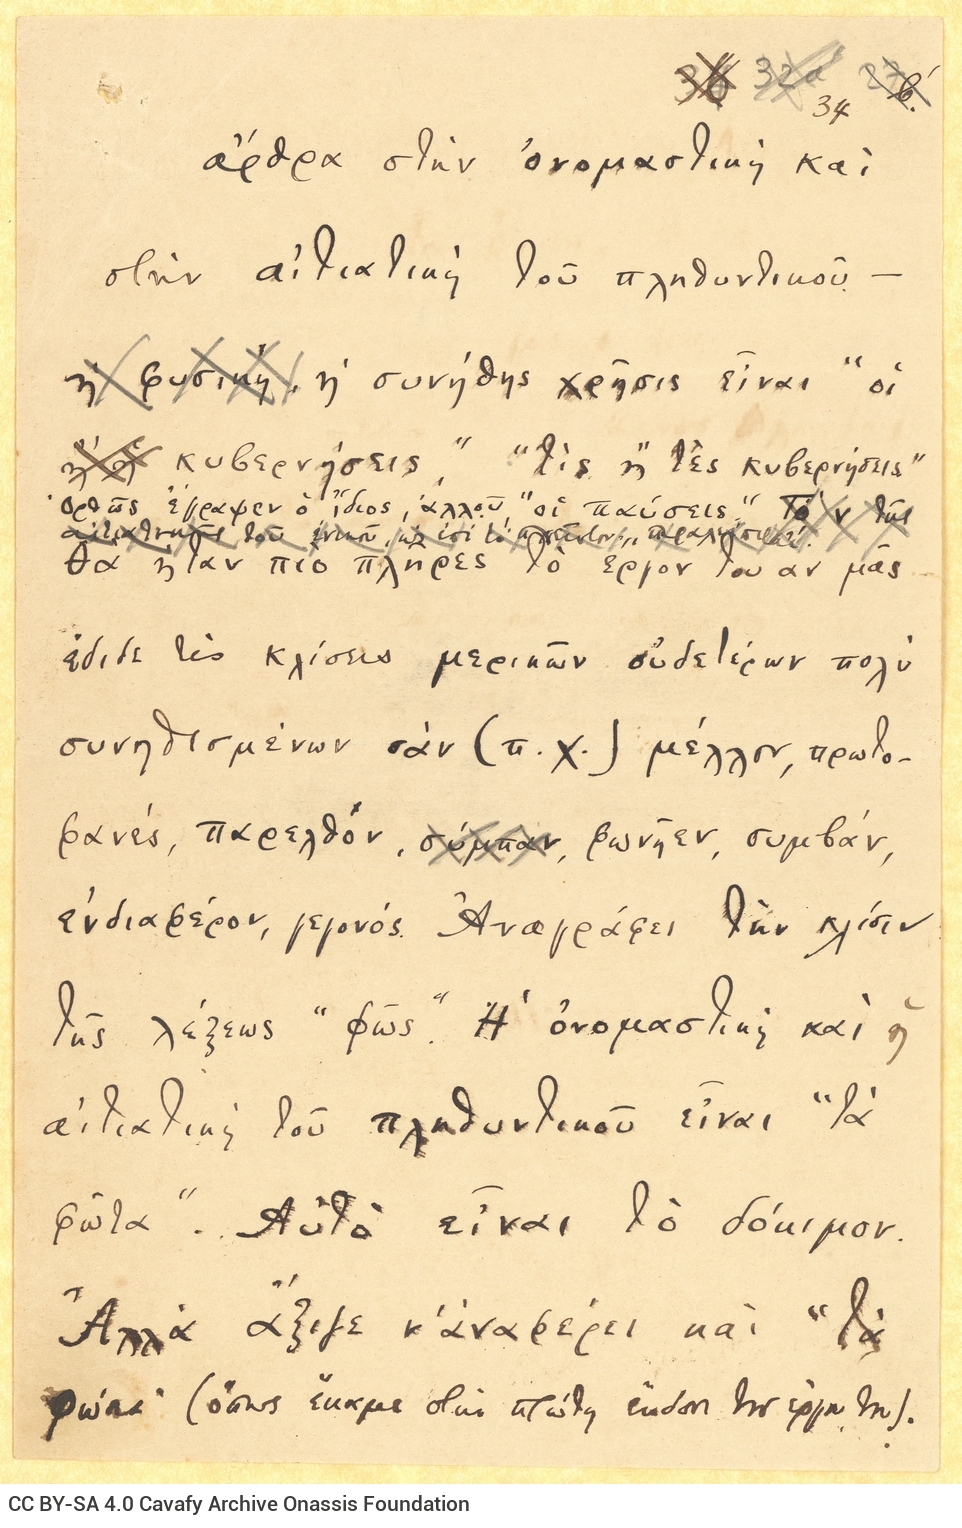 34 β.
ἄρθρα στὴν ὀνομαστικὴ καὶ
στὴν αἰτιατικὴ τοῦ πληθυντικοῦ —
ἡ φυσικὴ, ἡ συνήθης χρῆσις εἶναι "οἱ
κυβερνήσεις", "τὶς ἢ τὲς κυβερνήσεις"
Ὀρθῶς ἔγραψεν ὁ ἴδιος, ἀλλοῦ, "οἱ παύσεις."
Θὰ ἦταν πιὸ πλῆρες τὸ ἔργον του ἂν μᾶς
ἔδιδε τὲς κλίσεις μερικῶν οὐδετέρων πολὺ
συνηθισμένων σὰν (π.χ.) μέλλον, πρωτο-
φανές, παρελθόν, σύμπαν, φωνῆεν, συμβάν,
ἐνδιαφέρον, γεγονός. Ἀναγράφει τὴν κλίσιν
τῆς λέξεως "φῶς". Ἡ ὀνομαστικὴ καὶ ἡ
αἰτιατικὴ τοῦ πληθυντικοῦ εἶναι "τὰ
φῶτα". Αὐτὸ εἶναι τὸ δόκιμον.
Ἀλλὰ ἄξιζε ν' ἀναφέρει καὶ "τὰ
φῶτα" (ὅπως ἔκαμε στὴν πρώτη ἔκδοσι τοῦ ἔργου του).
CC BY-SA 4.0 Cavafy Archive Onassis Foundation